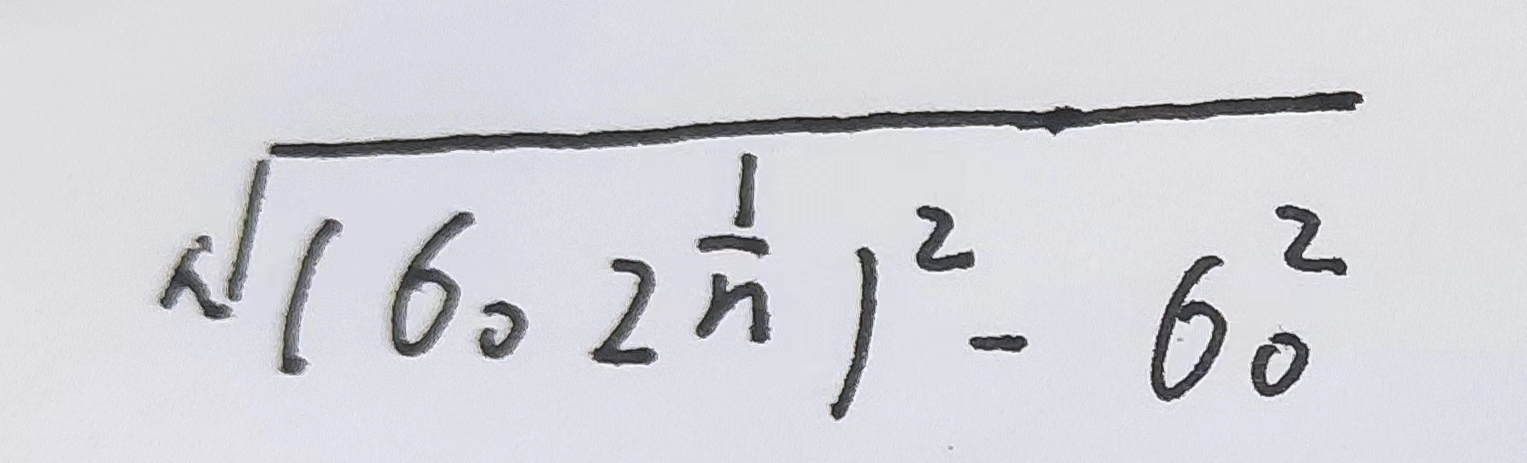 √((6₀ 2^(1/n))² - 6₀²)